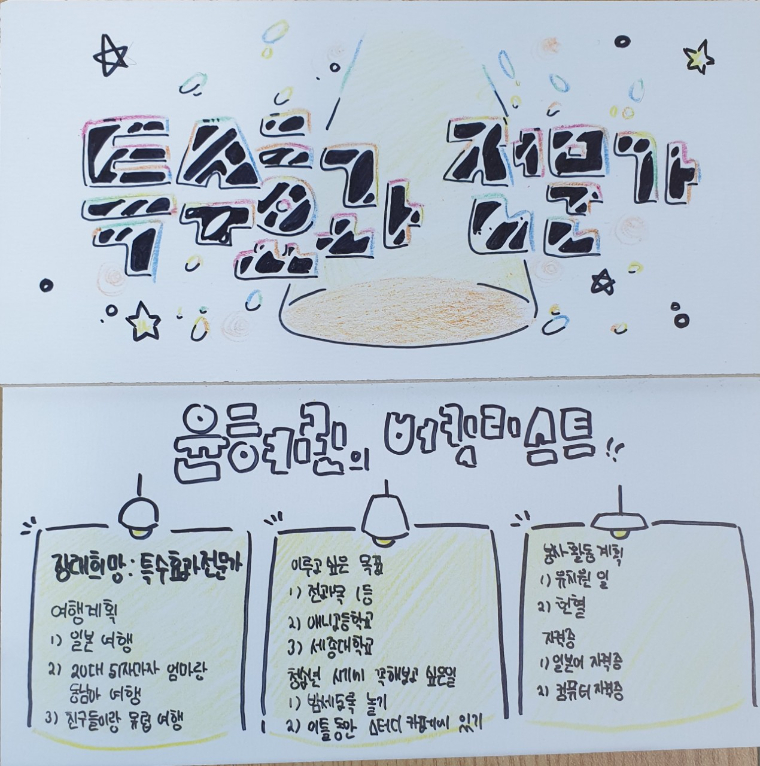 특수효과 전문가
버킷리스트!!
장래희망: 특수효과전문가
여행계획
1) 일본 여행
2) 20대 되자마자 엄마랑
동남아 여행
3) 친구들이랑 유럽 여행
이루고 싶은 목표
1) 전과목 1등
2) 애니고등학교
3) 세종대학교
청소년 시기에 꼭해보고 싶은일
1) 밤세도록 놀기
2) 이틀 동안 스터디 카페에서 있기
봉사활동계획
1) 유치원 일
2) 헌혈
자격증
1) 일본어 자격증
2) 컴퓨터 자격증